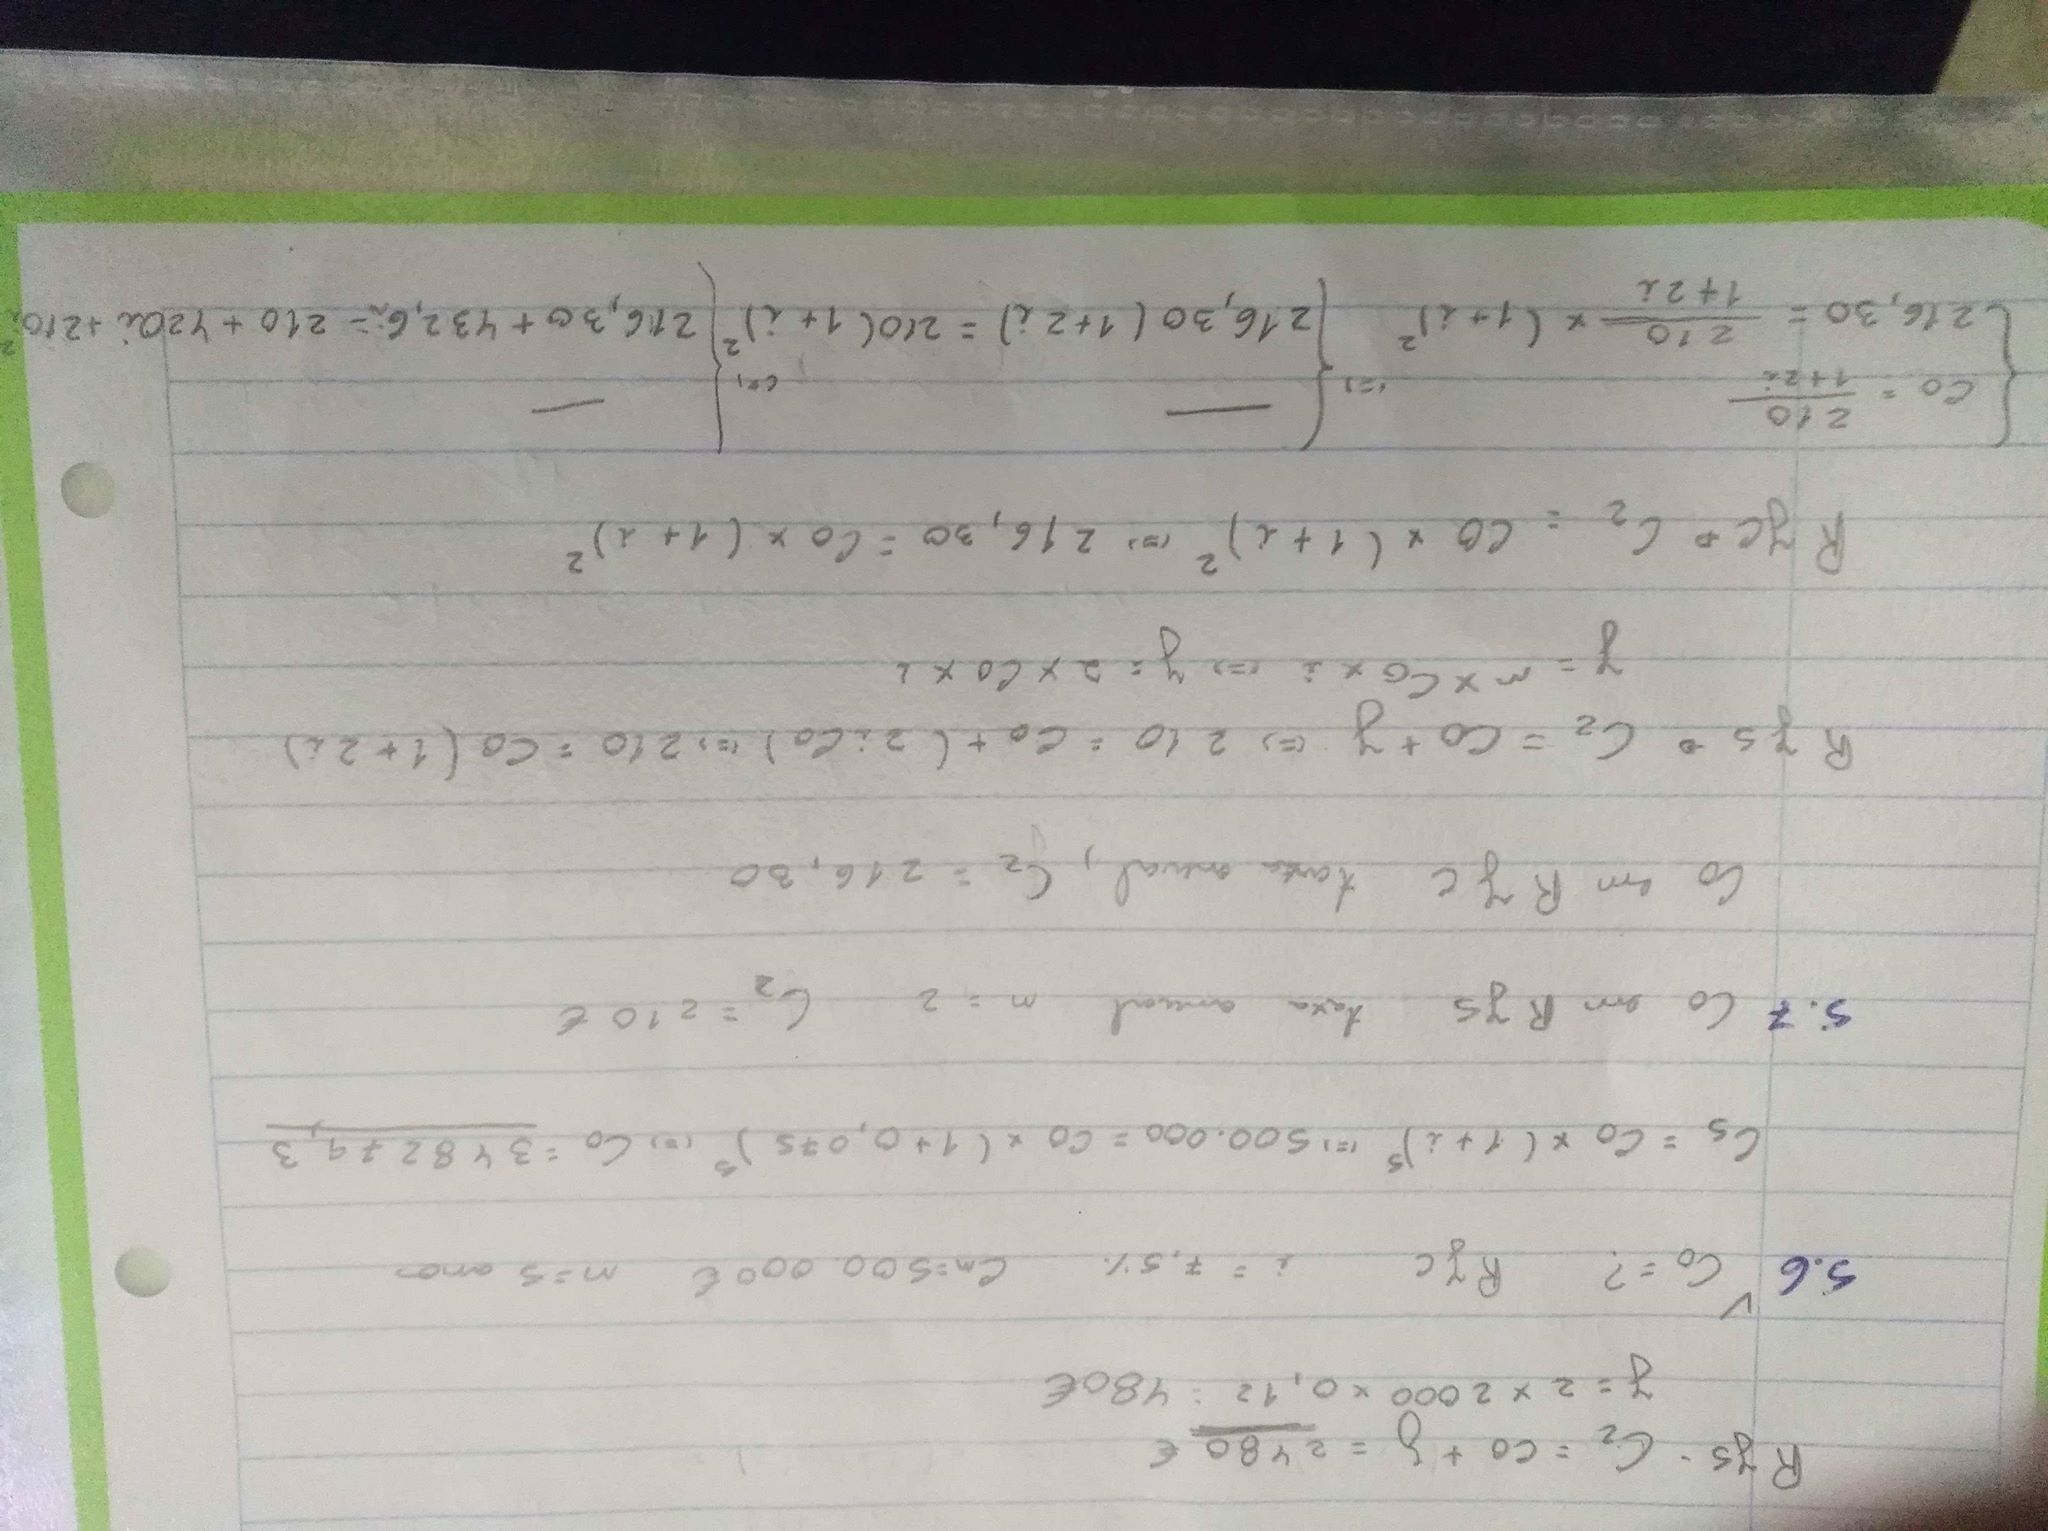 R y s - C₂ = C0 + y = 2480 €
y = 2 × 2000 × 0,12 = 480€
5.6 ✓ C0 = ? R y c i = 7,5% Cn=500.000€ n=5 anos
C5 = C0 × (1+i)⁵ (=) 500.000 = C0 × (1+0,075)⁵ (=) C0 = 348279,3
5.7 C0 em R y s taxa anual n = 2 C₂ = 210 €
C0 em R y c taxa anual, C₂ = 216,30
R y s → C₂ = C0 + y (=) 210 = C0 + (2iC0) (=) 210 = C0(1+2i)
y = n × C0 × i (=) y = 2 × C0 × i
R y c → C₂ = C0 × (1+i)² (=) 216,30 = C0 × (1+i)²
{ C0 = 210/1+2i (=) { — (=) { —
216,30 = 210/1+2i × (1+i)² 216,30(1+2i) = 210(1+i)² 216,30 + 432,6i = 210 + 420i + 210i²